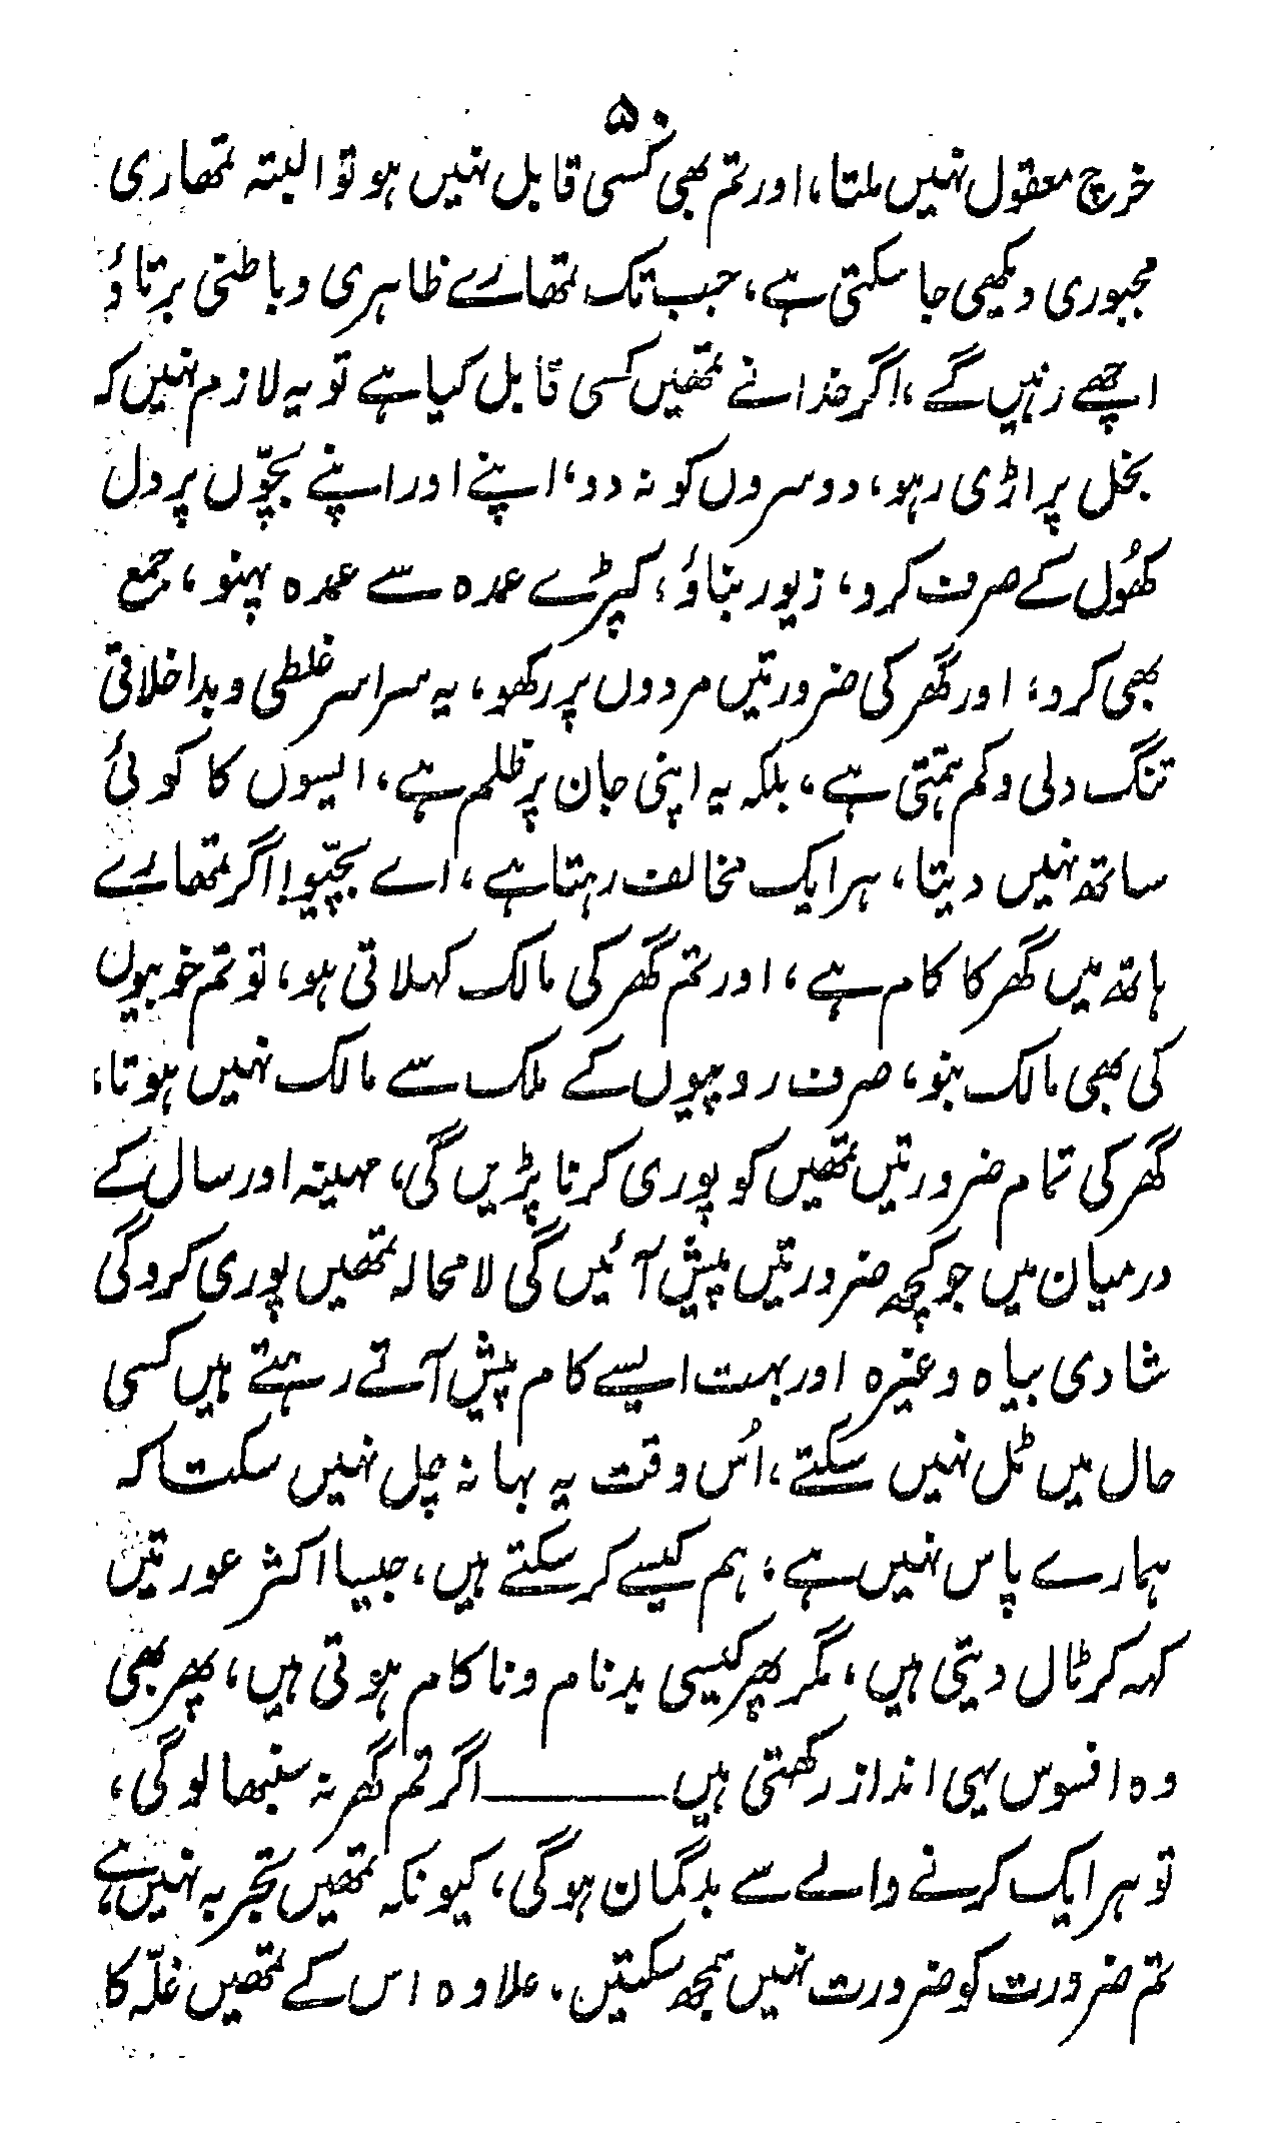 ۵۰
خرچ معقول نہیں ملتا، اور تم بھی کسی قابل نہیں ہو تو البتہ تمھاری
مجبوری دیکھی جا سکتی ہے، جب تک تمھارے ظاہری و باطنی برتاؤ
اچھے رہیں گے، اگر خدا نے تمھیں کسی قابل کیا ہے تو یہ لازم نہیں کہ
بخل پر اڑی رہو، دوسروں کو نہ دو، اپنے اور اپنے بچّوں پر دل
کھُول کے صرف کرو، زیور بناؤ، کپڑے عمدہ سے عمدہ پہنو، جمع
بھی کرو، اور گھر کی ضرورتیں مردوں پر رکھو، یہ سراسر غلطی و بداخلاقی
تنگ دلی و کم ہمتی ہے، بلکہ یہ اپنی جان پر ظلم ہے، ایسوں کا کوئی
ساتھ نہیں دیتا، ہر ایک مخالف رہتا ہے، اے بچّیو! اگر تمھارے
ہاتھ میں گھر کا کام ہے، اور تم گھر کی مالک کہلاتی ہو، تو تم خوبیوں
کی بھی مالک بنو، صرف روپیوں کے ملک سے مالک نہیں ہوتا،
گھر کی تمام ضرورتیں تمھیں کو پوری کرنا پڑیں گی، مہینہ اور سال کے
درمیان میں جو کچھ ضرورتیں پیش آئیں گی لا محالہ تمھیں پوری کرو گی
شادی بیاہ وغیرہ اور بہت ایسے کام پیش آتے رہتے ہیں کسی
حال میں ٹل نہیں سکتے، اُس وقت یہ بہانہ چل نہیں سکتا کہ
ہمارے پاس نہیں ہے، ہم کیسے کر سکتے ہیں، جیسا اکثر عورتیں
کہہ کر ٹال دیتی ہیں، مگر پھر کیسی بدنام و ناکام ہوتی ہیں، پھر بھی
وہ افسوس یہی انداز رکھتی ہیں ــــــــ اگر تم گھر نہ سنبھالو گی،
تو ہر ایک کرنے والے سے بدگمان ہو گی، کیونکہ تمھیں تجربہ نہیں ہے،
تم ضرورت کو ضرورت نہیں سمجھ سکتیں، علاوہ اس کے تمھیں غلّہ کا